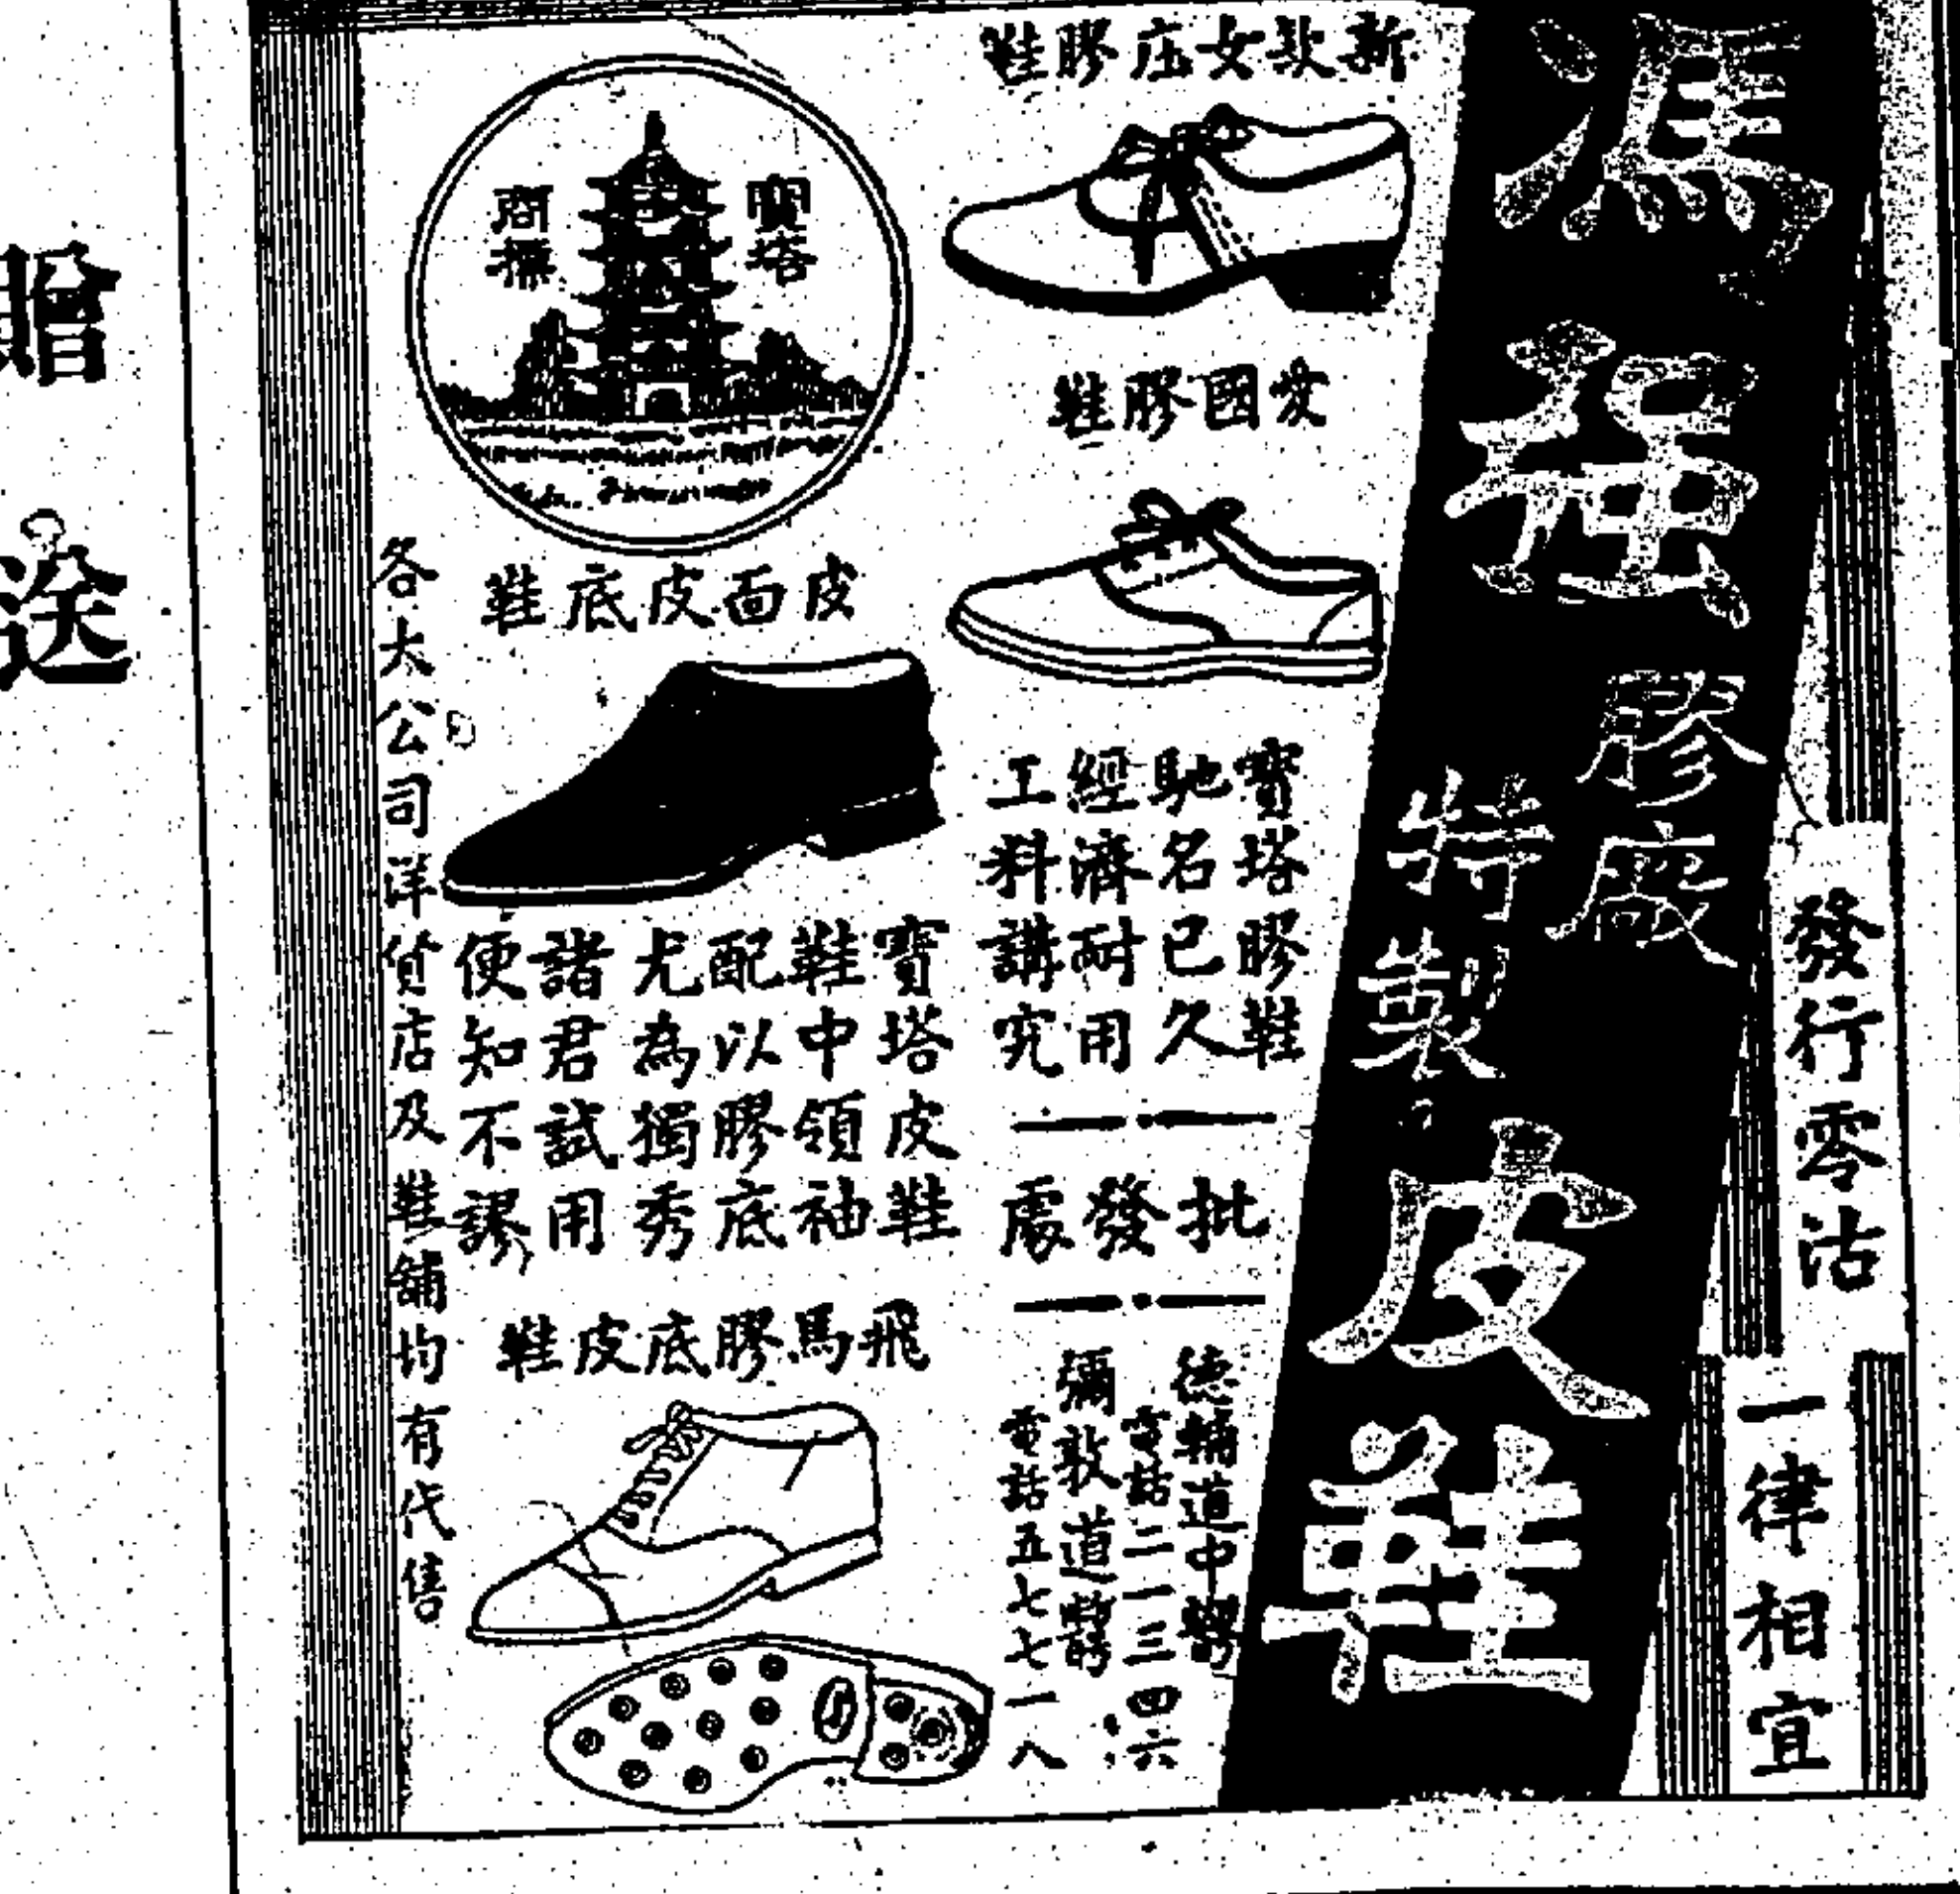 馮强
膠廠
特製
皮鞋
發行零沽
一律相宜
新款女庄膠鞋
愛國膠鞋
寶塔膠鞋
馳名已久
經濟耐用
工料講究
批發處
德輔道中
電話二一三四六
彌敦道
電話五七七一八
寶塔
商標
皮面皮底鞋
寶塔皮鞋
鞋中領袖
配以膠底
尤為獨秀
諸君試用
便知不謬
飛馬膠底皮鞋
各大公司洋貨店及鞋舖均有代售
贈送